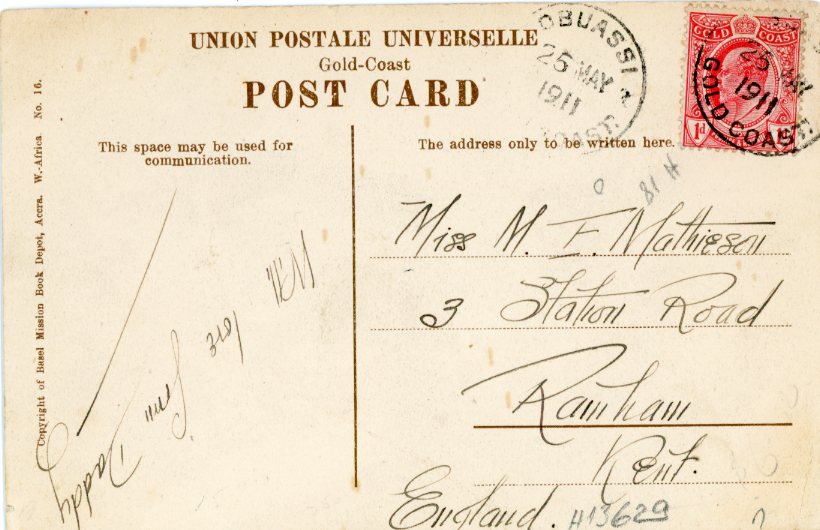 UNION POSTALE UNIVERSELLE
Gold-Coast
POST CARD
OBUASSI
25 MAY
1911
COAST.
GOLD COAST
1d
25 MAY
1911
GOLD COAST.
This space may be used for
communication.
The address only to be written here.
Copyright of Basel Mission Book Depôt, Accra. W.-Africa No. 16.
With
love
from
Daddy
81 H
Miss M. F. Mathieson
3 Station Road
Rainham
Kent.
England.
H13629